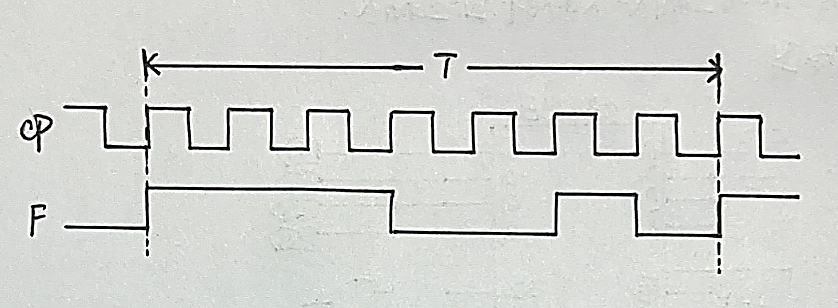 T
CP
F